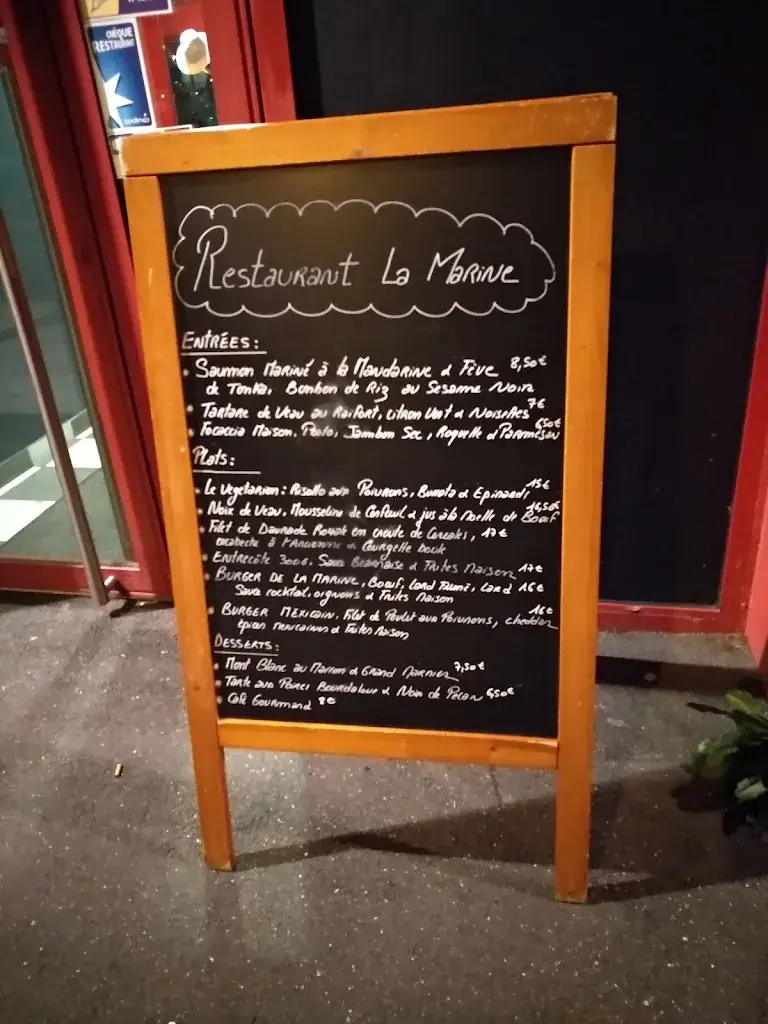 CHÈQUE
RESTAURANT
sodexo
Restaurant La Marine
ENTRÉES:
• Saumon Mariné à la Mandarine & Fève 8,50€
de Tonka, Bonbon de Riz au Sesame Noir
• Tartare de Veau au Raifort, citron Vert & Noisettes 7€
• Focaccia Maison, Pesto, Jambon Sec, Roquette & Parmesan 6,50€
Plats:
• Le Vegetarien: Risotto aux Poivrons, Burrata & Epinards 15€
• Noix de Veau, Mousseline de & jus à la Moelle de Boeuf 16,50€
• Filet de Daurade Royale en croute de Cereales, 17€
à l'Ancienne & Courgette
• Entrecôte 300G, Sauce Bearnaise & Frites Maison 17€
• BURGER DE LA MARINE, Boeuf, Lard Fumé, Lard 16€
Sauce cocktail, oignons & Frites Maison
• BURGER MEXICAIN, Filet de Poulet aux Poivrons, cheddar 16€
épices mexicaines & Frites Maison
DESSERTS:
• Mont Blanc au Marron & Grand Marnier 7,50€
• Tarte aux Poires Bourdaloue & Noix de Pecan 6,50€
• Café Gourmand 8€